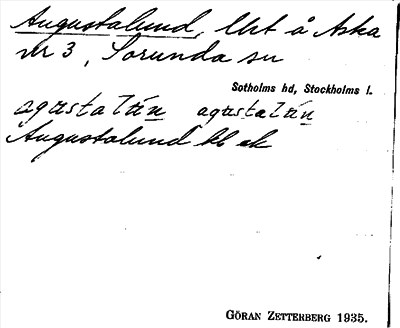 Augustalund, lht å Aska
nr 3, Sorunda sn
Sotholms hd, Stockholms l.
agustalün agustalün
Augustalund kb ek
GÖRAN ZETTERBERG 1935.